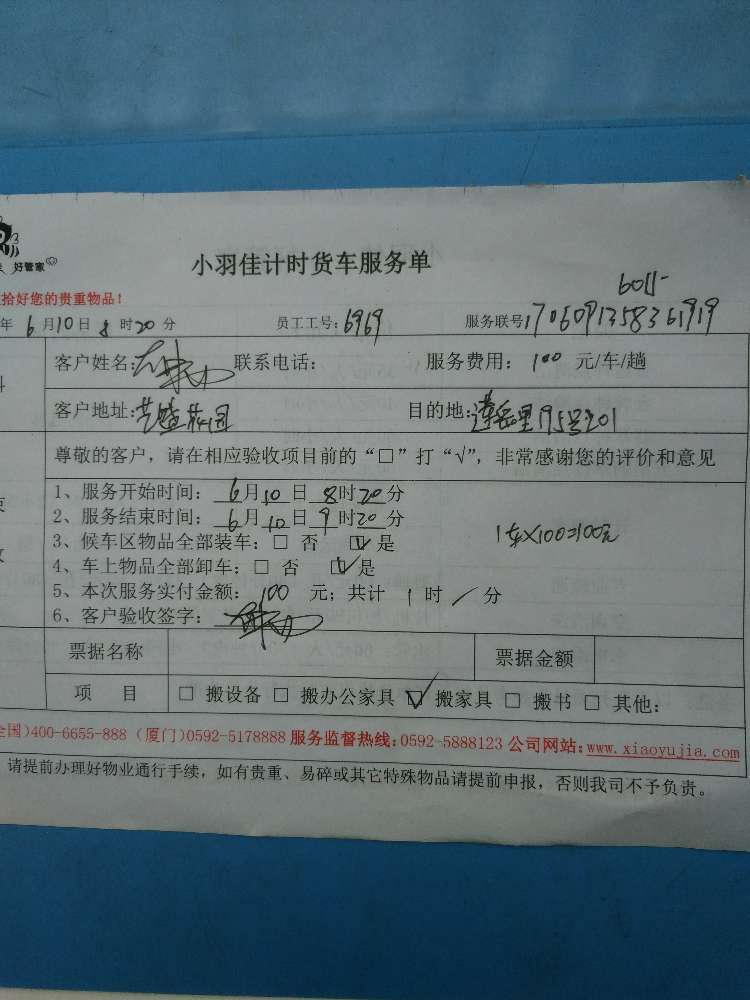 好管家
小羽佳计时货车服务单
拾好您的贵重物品！
6011-
年 6 月 10 日 8 时 20 分 员工工号：6969 服务联号：1706091358361919
客户姓名： 联系电话： 服务费用： 100 元/车/趟
客户地址： 目的地：莲岳里195号201
尊敬的客户，请在相应验收项目前的“□”打“√”，非常感谢您的评价和意见
1、服务开始时间： 6 月 10 日 8 时 20 分
2、服务结束时间： 6 月 10 日 9 时 20 分
1车×100=100元
3、候车区物品全部装车：□ 否 ☑ 是
4、车上物品全部卸车：□ 否 ☑ 是
5、本次服务实付金额： 100 元；共计 1 时 / 分
6、客户验收签字：
票据名称 票据金额
项 目 □ 搬设备 □ 搬办公家具 ☑ 搬家具 □ 搬书 □ 其他：
全国)400-6655-888 (厦门)0592-5178888 服务监督热线：0592-5888123 公司网站：www.xiaoyujia.com
请提前办理好物业通行手续，如有贵重、易碎或其它特殊物品请提前申报，否则我司不予负责。